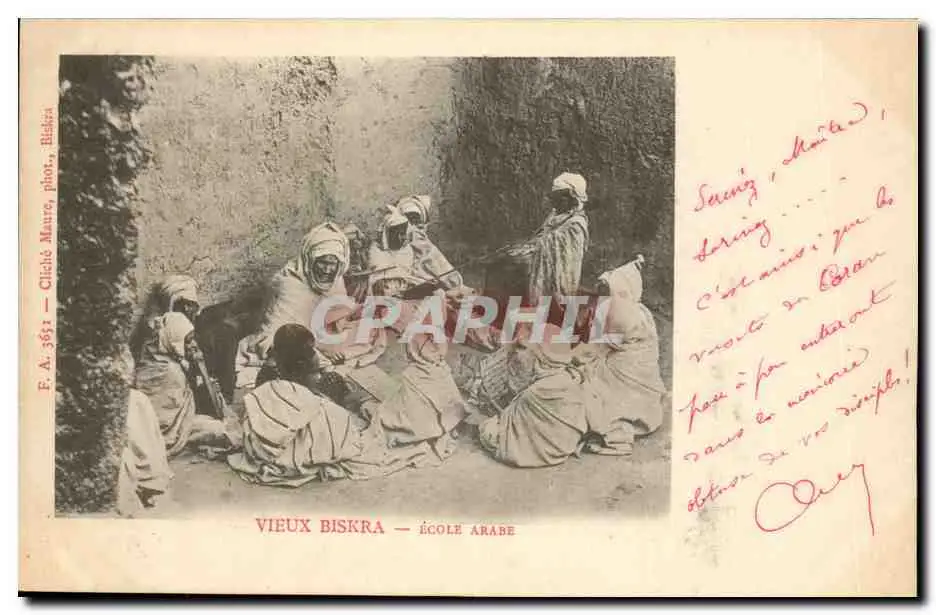 F. A. 3651 — Cliché Maure, phot., Biskra
CPARHIL
VIEUX BISKRA — ÉCOLE ARABE
Serinez, Maître,
Serinez ....
C'est ainsi que les
versets du Coran
peu à peu entreront
dans la mémoire
obtuse de vos disciples!